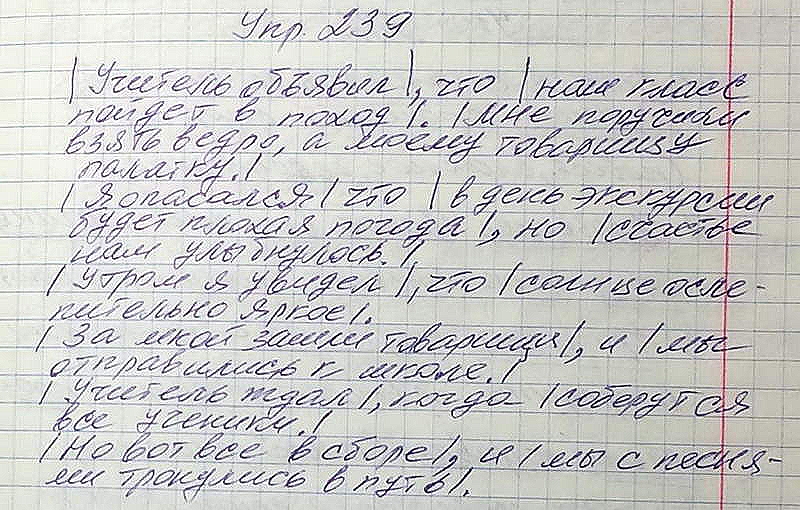 Упр. 239
| Учитель объявил |, что | наш класс
пойдет в поход |. | Мне поручили
взять ведро, а моему товарищу
палатку. |
| Я опасался | что | в день экскурсии
будет плохая погода |, но | счастье
нам улыбнулось. |
| Утром я увидел |, что | солнце осле-
пительно яркое |.
| За мной зашли товарищи |, и | мы
отправились к школе. |
| Учитель ждал |, когда | соберутся
все ученики. |
| Но вот все в сборе |, и | мы с песня-
ми тронулись в путь |.